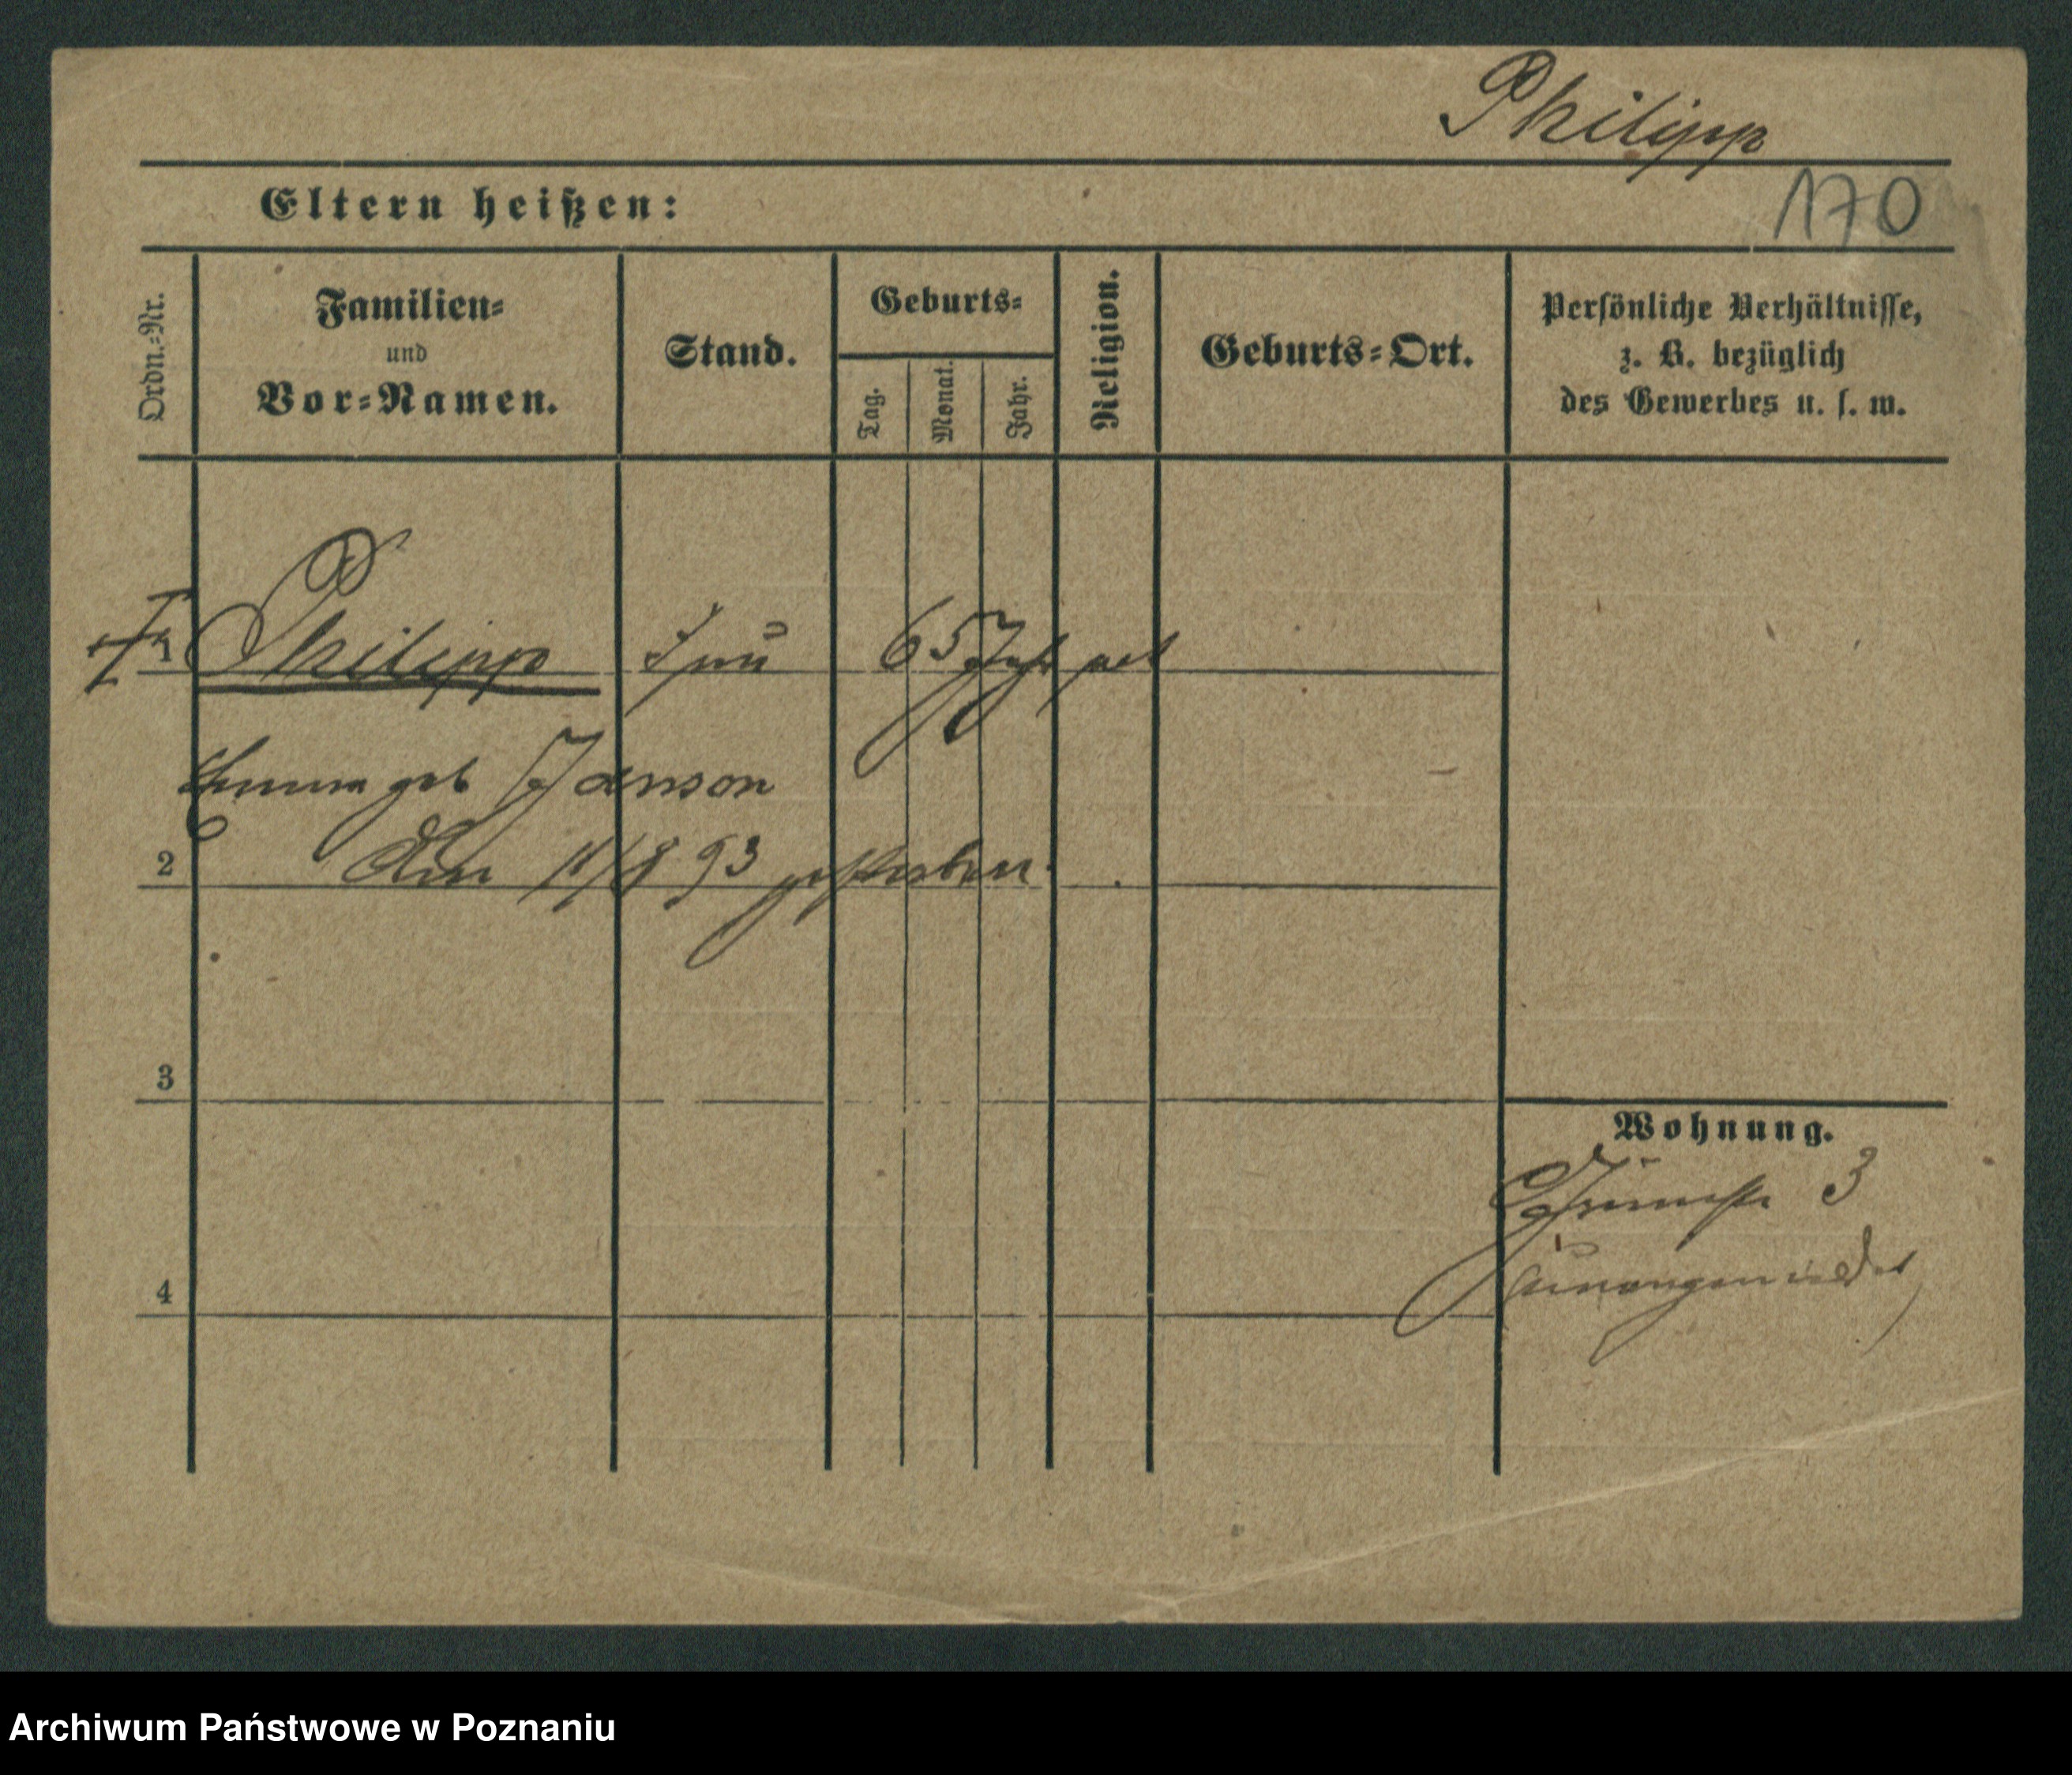 Philipp
Eltern heißen:
170
Ordn.=Nr.
Familien=
und
Vor=Namen.
Stand.
Geburts=
Tag.
Monat.
Jahr.
Religion.
Geburts=Ort.
Persönliche Verhältnisse,
z. B. bezüglich
des Gewerbes u. s. w.
1 Philipp Frau 65 Jahr alt
Emma geb Janson
2 Am 11/8 93 gestorben.
3
4
Wohnung.
3
Archiwum Państwowe w Poznaniu